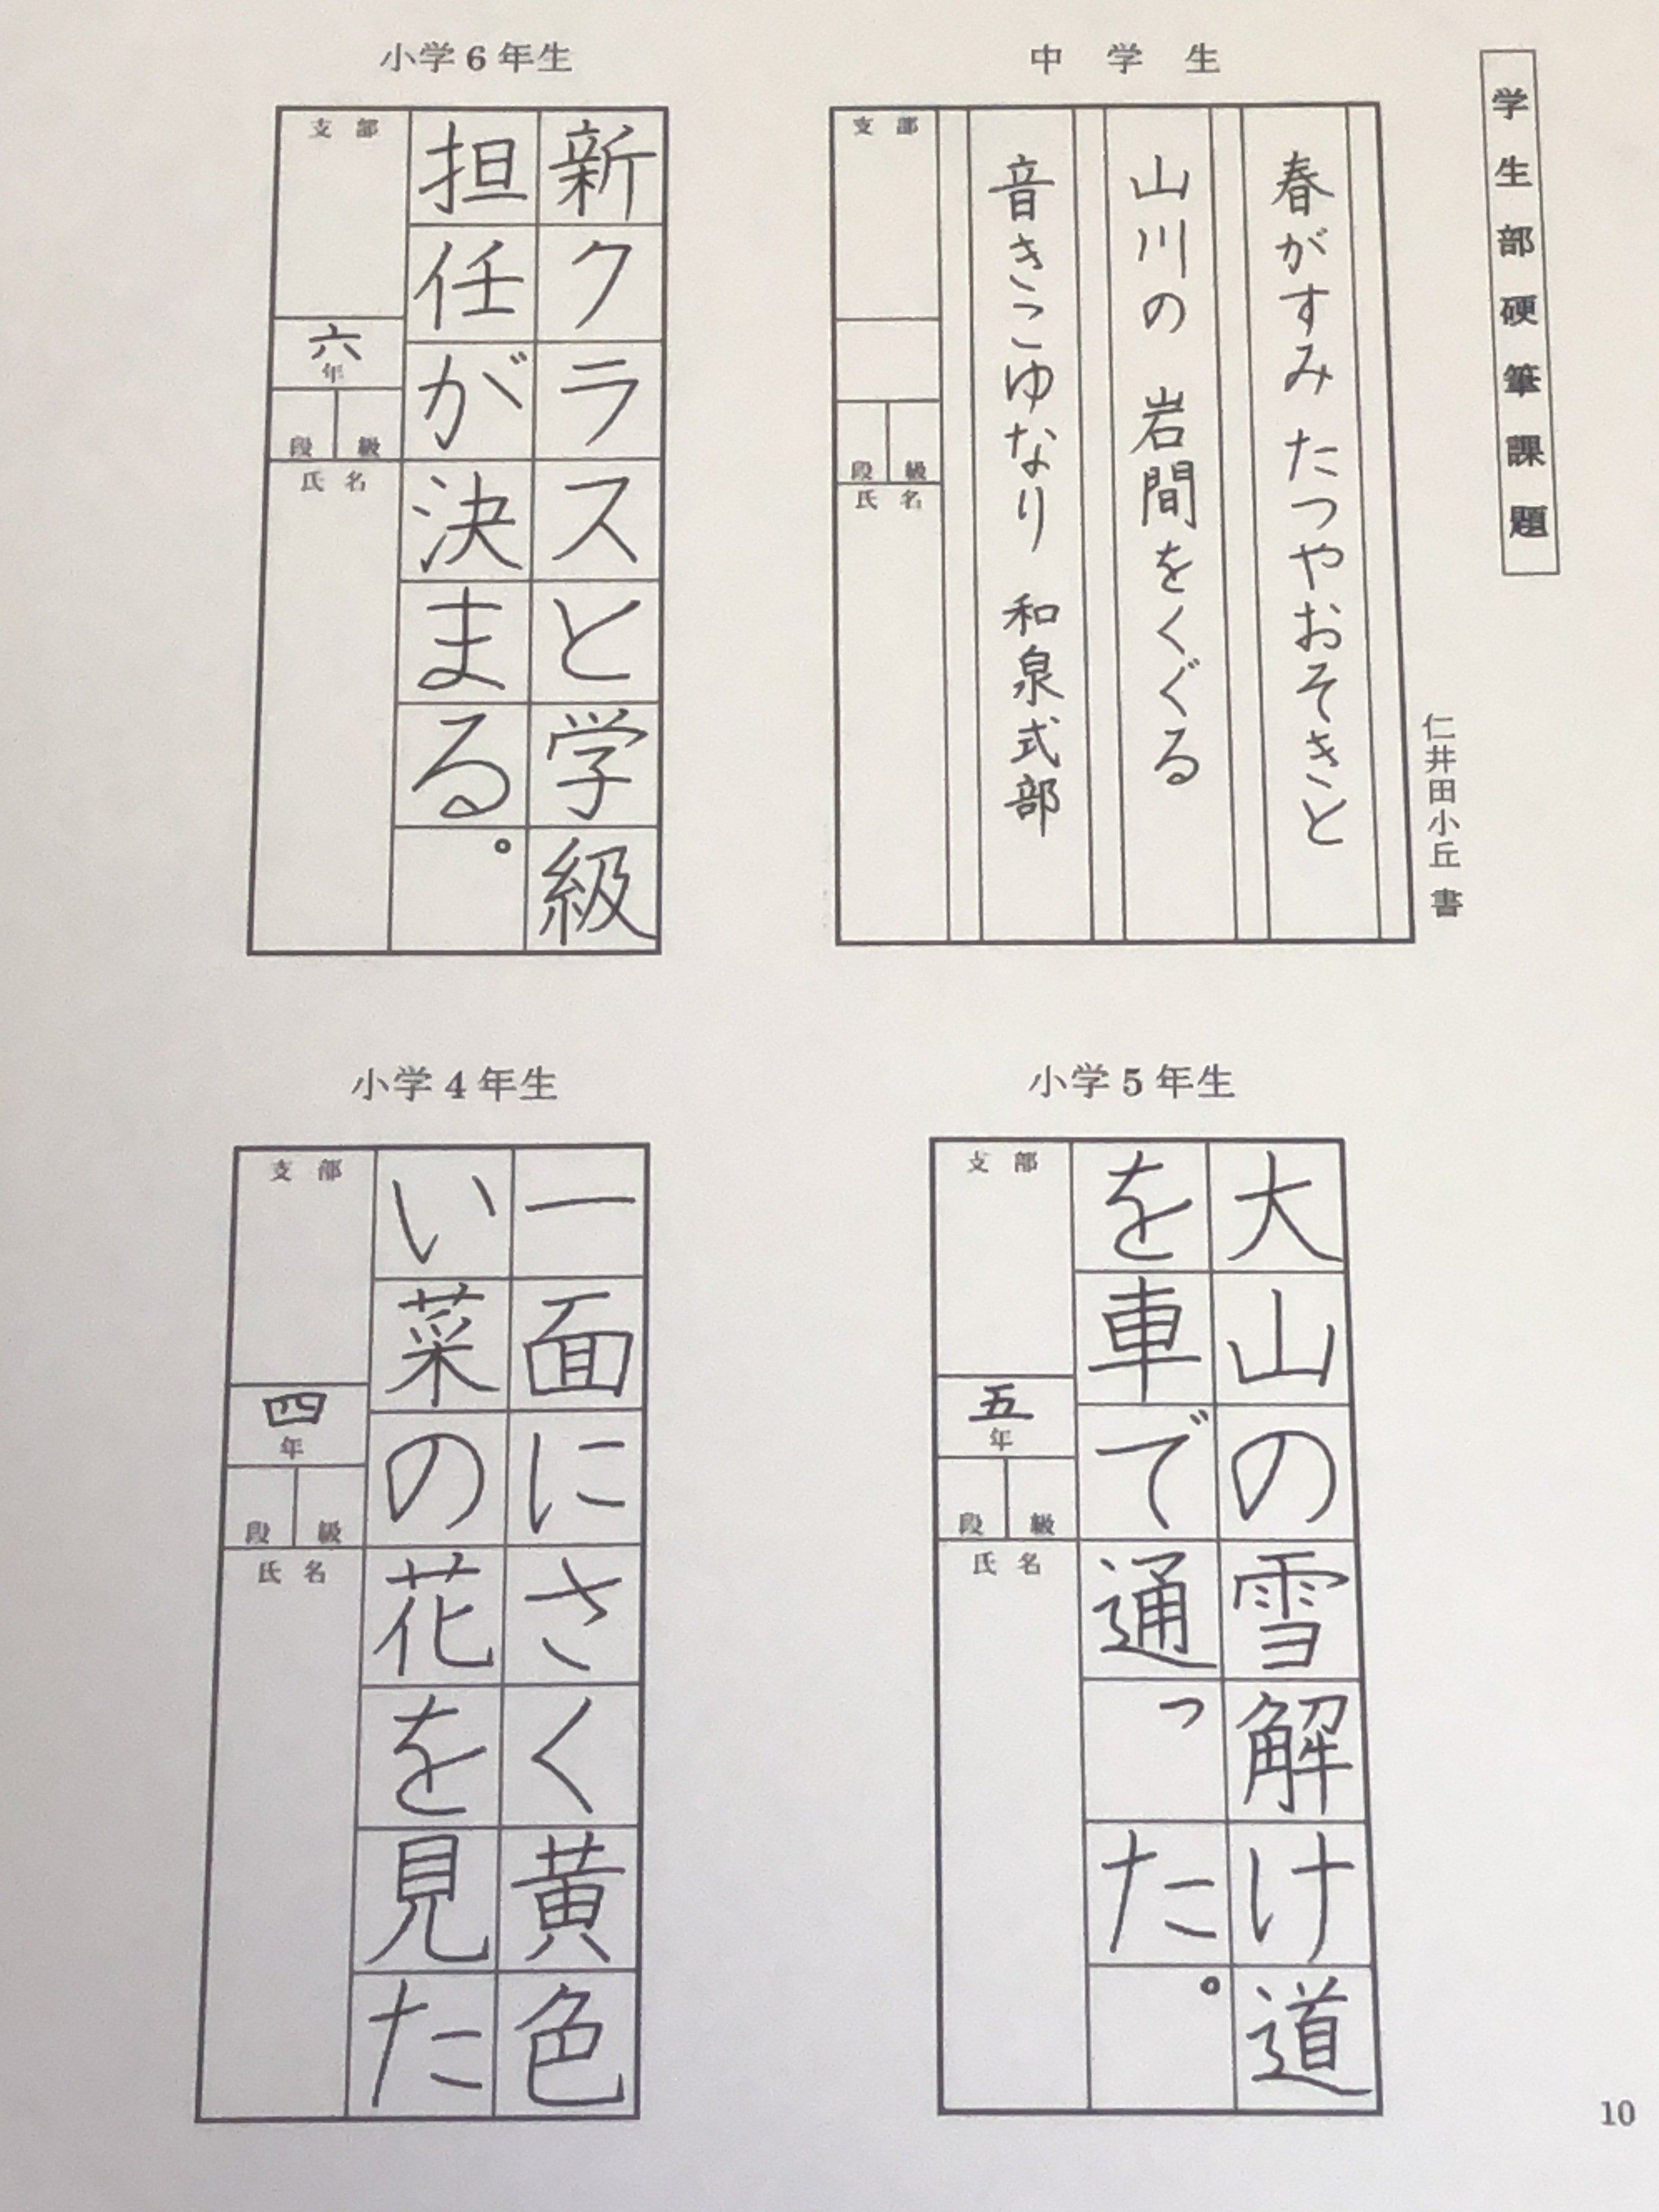 学生部硬筆課題
仁井田小丘 書
中学生
春がすみたつやおそきと
山川の 岩間をくぐる
音きこゆなり 和泉式部
支部
段 級
氏名
小学6年生
新クラスと学級
担任が決まる。
支部
六年
段 級
氏名
小学5年生
大山の雪解け道
を車で通った。
支部
五年
段 級
氏名
小学4年生
一面にさく黄色
い菜の花を見た
支部
四年
段 級
氏名
10